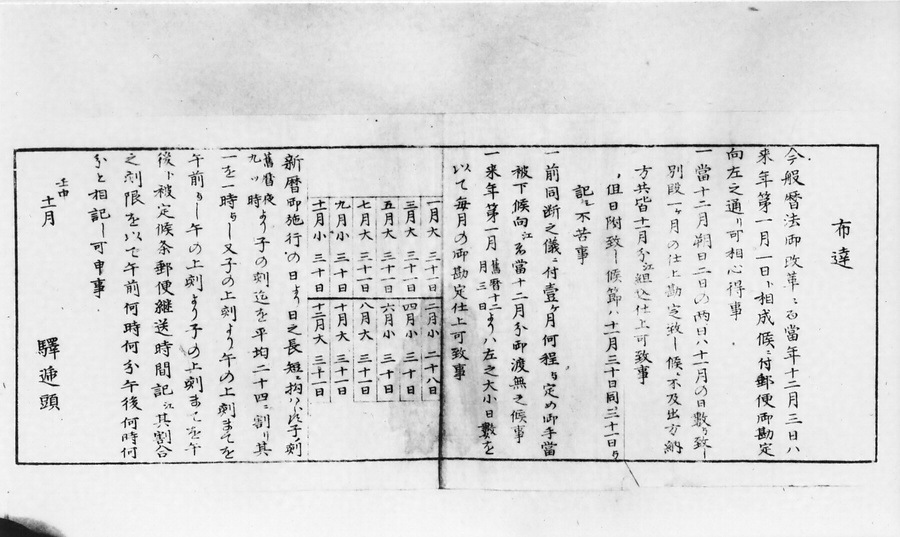 布達
今般暦法御改革ニ而當年十二月三日ハ
来年第一月一日ト相成候ニ付郵便御勘定
向左之通リ可相心得事
一當十二月朔日二日の両日ハ十一月の日数ニ致し
別段一ヶ月の仕上勘定致し候ニ不及出方納
方共皆十一月分江組込仕上可致事
但日附致し候節ハ十一月三十日同三十一日ヲ
記ニ不苦事
一前同断之儀ニ付壹ヶ月何程ヲ定め御手當
被下候向江ハ當十二月分御渡無之候事
一来年第一月舊暦十二月三日より八左之大小日數を
以て毎月の御勘定仕上可致事
一月大 三十一日 二月小 二十八日
三月大 三十一日 四月小 三十日
五月大 三十一日 六月小 三十日
七月大 三十一日 八月大 三十一日
九月小 三十日 十月大 三十一日
十一月小 三十日 十二月大 三十一日
新暦御施行の日より日之長短ニ拘ハらす子ノ刻
舊暦夜九ツ時より子の刻迄を平均二十四ニ割リ其
一を一時とし又子の上刻より午の上刻まてを
午前とし午の上刻より子の上刻まてを午
後ト被定候条郵便継送時間記江其割合
之刻限を以て午前何時何分午後何時何
分と相記し可申事
壬申
十一月 驛逓頭